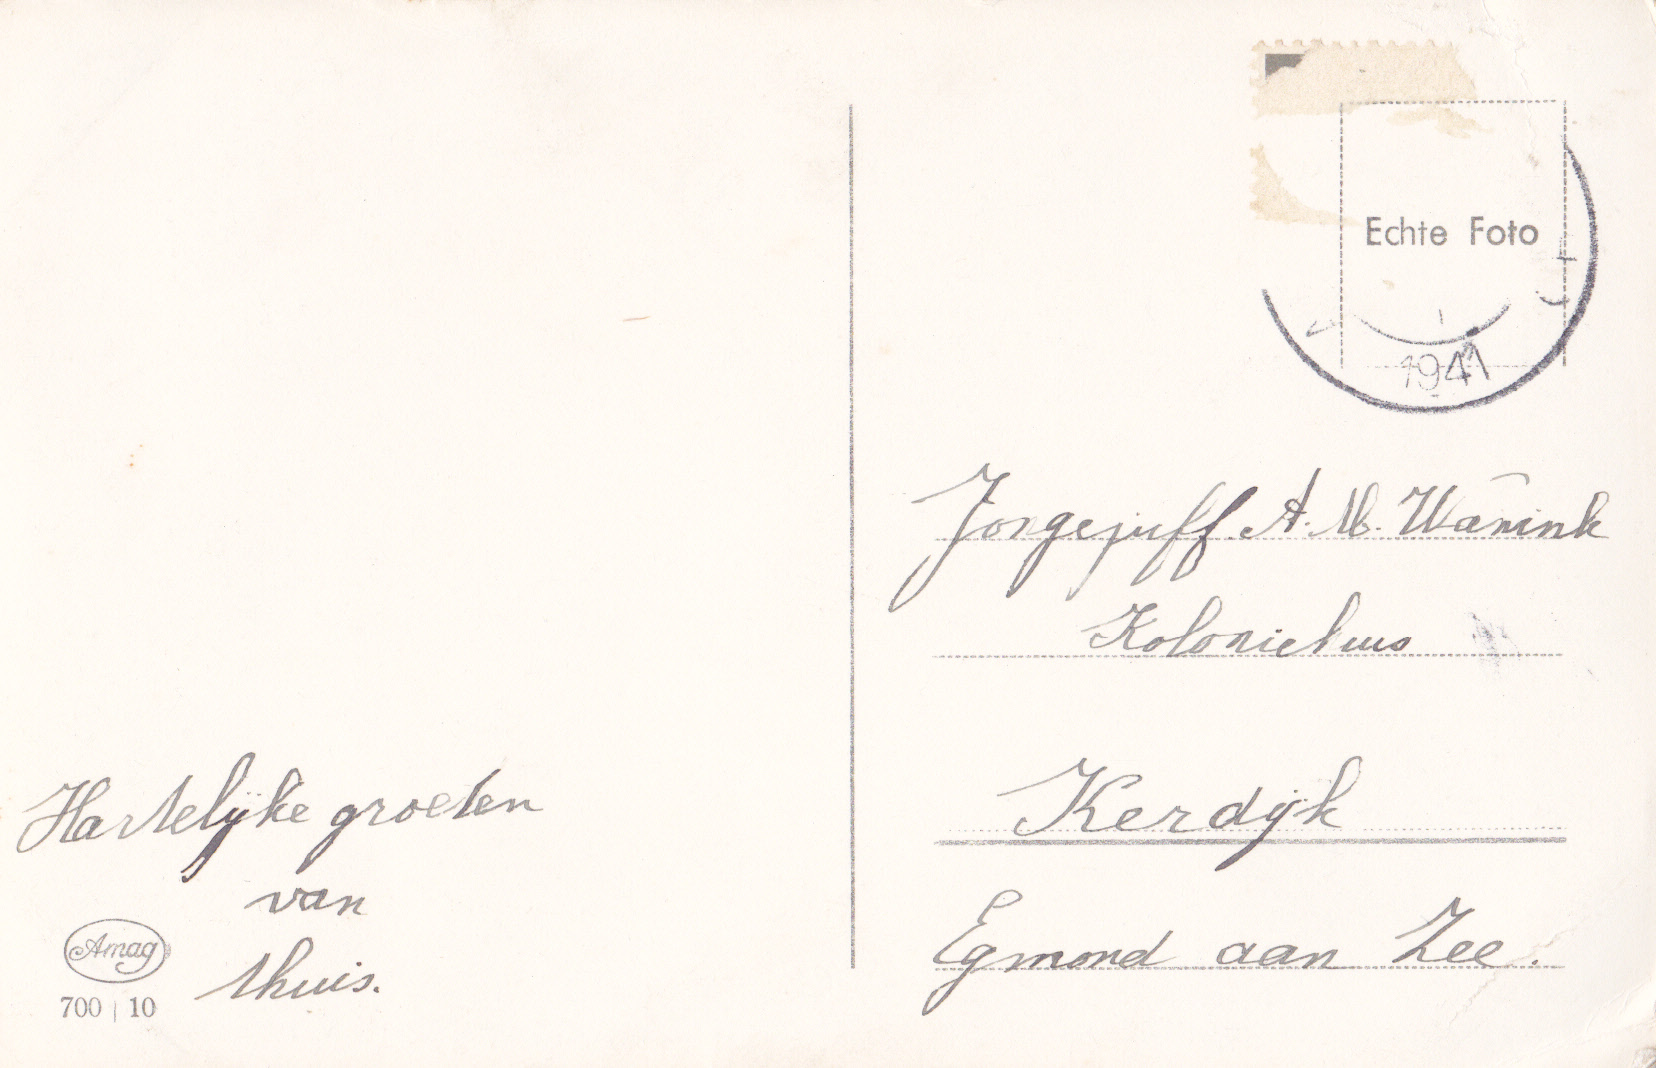 Echte Foto
1941
Jongejuff A. M. Wānink
Koloniehuis
Kerdijk
Egmond aan Zee.
Hartelijke groeten
van
thuis.
Amag
700 | 10